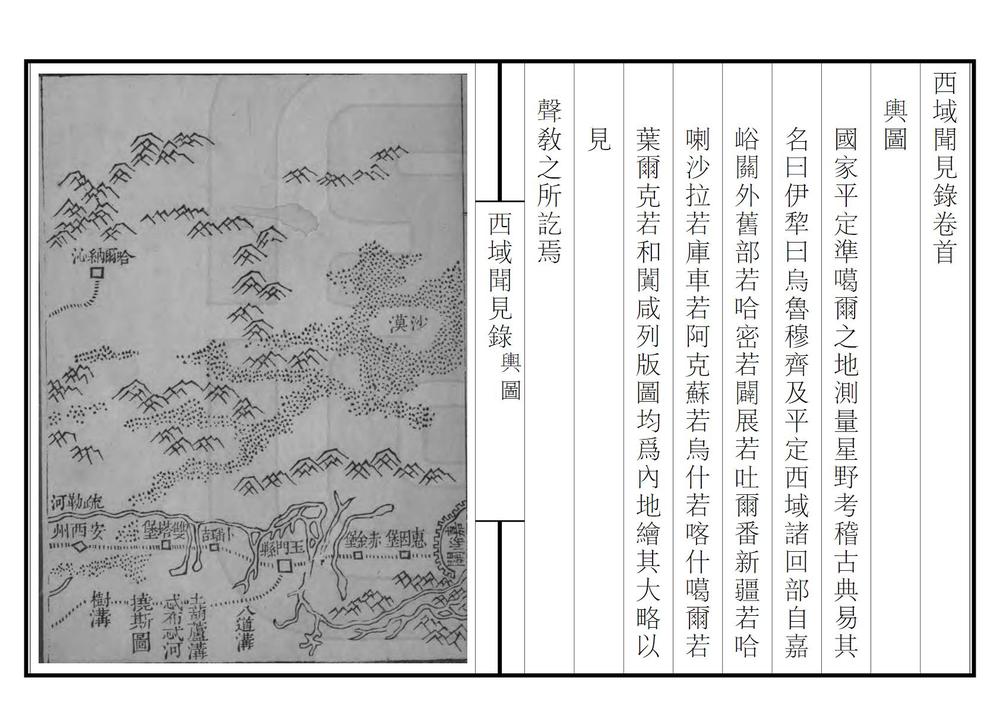 西域聞見錄卷首
輿圖
國家平定準噶爾之地測量星野考稽古典易其
名曰伊犂曰烏魯穆齊及平定西域諸回部自嘉
峪關外舊部若哈密若闢展若吐爾番新疆若哈
喇沙拉若庫車若阿克蘇若烏什若喀什噶爾若
葉爾克若和闐咸列版圖均爲內地繪其大略以
見
聲敎之所訖焉
西域聞見錄
輿圖
沙漠
哈爾納沁
惠囬堡
赤金堡
玉門縣
雙塔堡
安西州
疏勒河
八道溝
土葫蘆溝
橈斯圖
樹溝